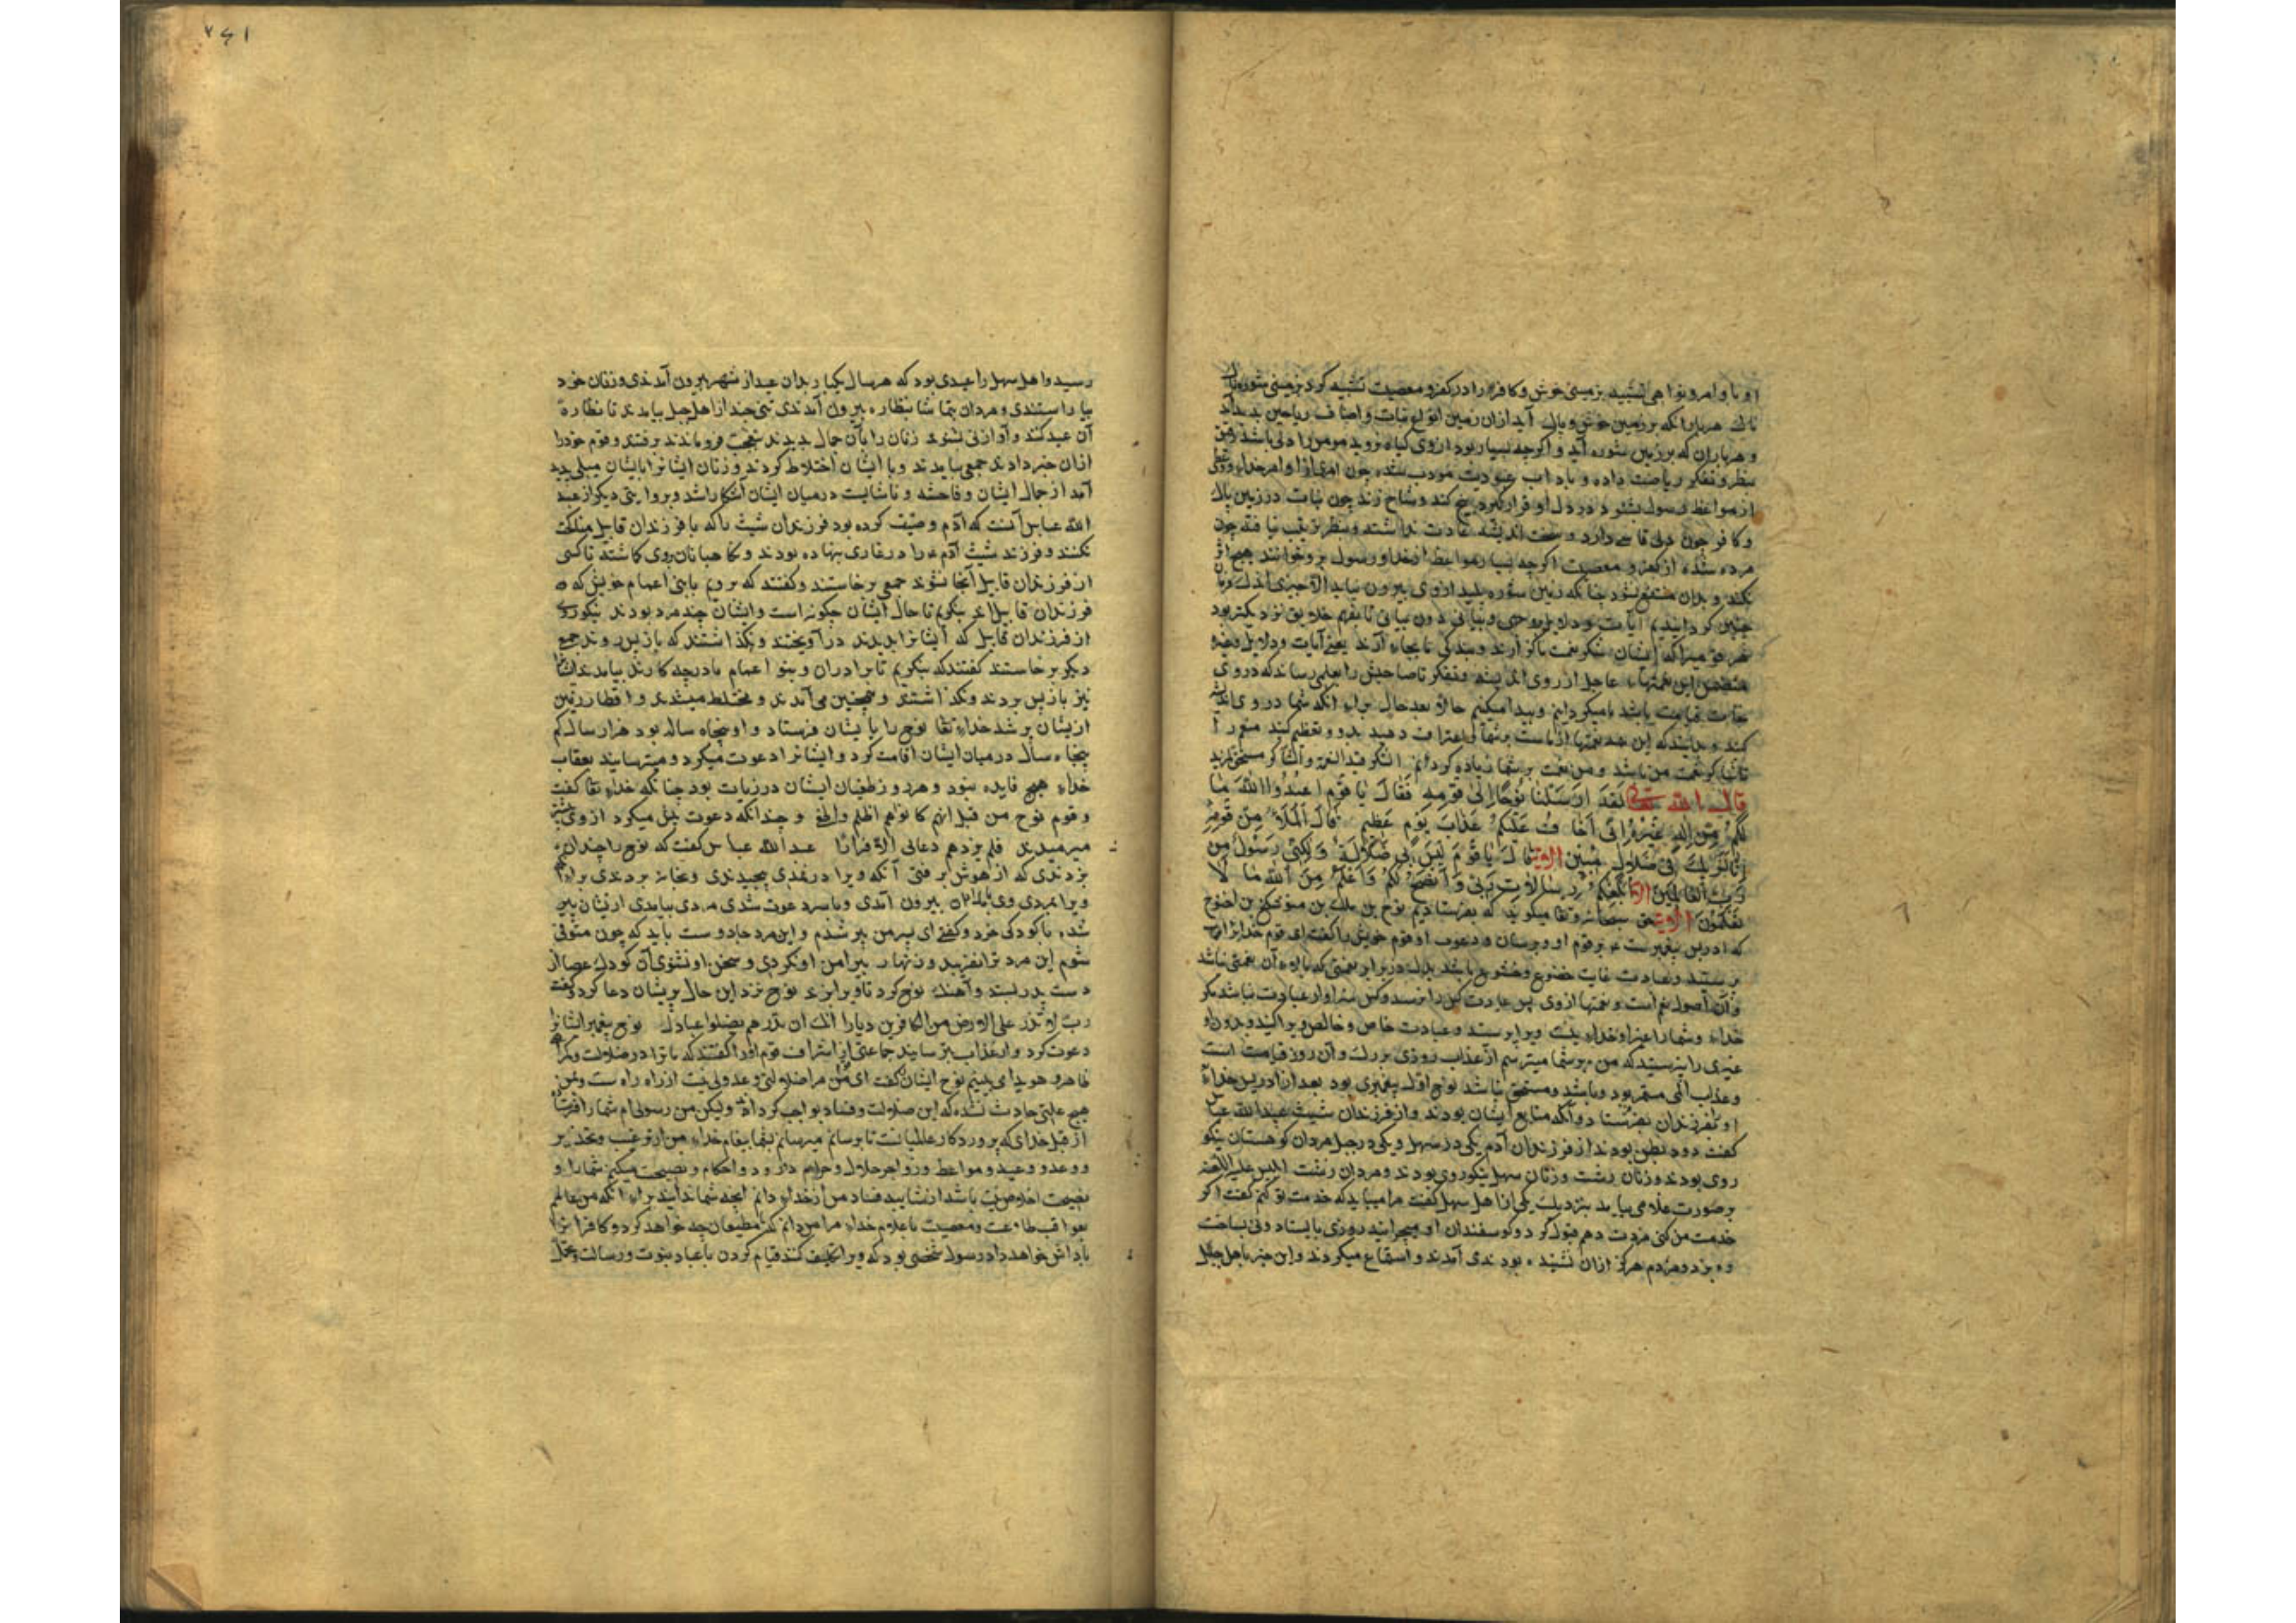 او با وامر ونواهی تشبیه بزمینی خوش وکافر را در کفر و معصیت تشبیه کرد بزمینی شوره
ناک هر باران که بر زمین خوش و پاک آید از آن زمین انواع نبات و اصناف ریاحین پدید آید
و هر باران که بر زمین شوره آید و اگر چه بسیار بود از وی گیاه نروید مومن را دلی باشد
بنظر و تفکر ریاضت داده و باداب عبودیت مودب شده چون امری از اوامر خدای
از مواعظ رسول بشنود در دل او قرار گیرد بیخ کند و شاخ زند چون نبات در زمین پاک
و کافر چون دلی قاسی دارد و سخت اندیشه عادت نداشته و بنظر ترتیب نیافته چون
مرده شده از کفر و معصیت اگر چه بسیار مواعظ از خدا و رسول بر و خوانند هیچ اثر
نکند و بدان منتفع نشود چنانکه زمین شوره پلید از وی بیرون نیاید الا چیزی اندک
چنین گردانیدیم آیات و دلایل
هر قومیرا که ایشان شکر نعمت ما گزارند و بندگی ما بجای آرند یعنی آیات و دلایل
متضمن این نعمتهاء عاجل از روی اندیشه و تفکر تا صاحبش را بعلمی رساند که در وی
نجات قیامت باشد ما میگردانیم و پیدا میکنیم حالا بعد حال برای آنکه شما در وی اندیشه
کنید و بدانید که این همه نعمتها از ماست بر شما اعتراف دهید بدو و تعظیم کنید منعم را
تا شاکر نعمت من باشید و من نعمت بر شما زیاده گردانم الشکر قید النعم والشاکر مستحق المزید
قال الله تعالی لقد ارسلنا نوحا الی قومه فقال یا قوم اعبدوا الله ما
لکم من اله غیره انی اخاف علیکم عذاب یوم عظیم قال الملأ من قومه
انا لنریک فی ضلال مبین الآیة قال یا قوم لیس بی ضلالة ولکنی رسول من
رب العالمین الآیة ابلغکم رسالات ربی وانصح لکم واعلم من الله ما لا
تعلمون الآیة حق سبحانه وتعا میگوید که بفرستادیم نوح بن ملک بن متوشلخ بن اخنوخ
که ادریس پیغمبرست ع بر قوم او و برسان و دعوت او قوم خویش را گفت ای قوم خدایرا
پرستید و عبادت غایت خضوع و خشوع باشد بدل در برابر نعمتی که بالاء آن نعمتی نباشد
و آن اصول نعم است و نعمتها از وی پس عبادت کس را نرسد و کس سزاوار عبادت نباشد مگر
خداء و شما را غیر او خدای نیست ویرا پرستید و عبادت خاص و خالص ویرا کنید و بدون او
غیری را نپرستید که من بر شما میترسم از عذاب روزی بزرگ و آن روز قیامت است
و عذاب الهی مستمر بود و باشد و مستحق باشد نوح اول پیغمبری بود بعد از ادریس خداء
او را بفرزندان بفرستاد و آنکه متابع ایشان بودند و از فرزندان شیث عبد الله عباس
گفت دو بطن بودند از فرزندان آدم یکی در سهل و یکی در جبل مردان کوهستان نیکو
روی بودند و زنان زشت و زنان سهل نیکو روی بودند و مردان زشت ابلیس علیه اللعنه
بر صورت غلامی بیامد بنزدیک یکی از اهل سهل گفت مرا میباید که خدمت تو کنم گفت اگر
خدمت من کنی مزدت دهم قبول کرد و گوسفندان او میچرانید روزی بایستاد و نی بساخت
و می زد و مردم هرگز از آن نشنیده بودندی آمدند و استماع میکردند و این خبر باهل جبل
رسید و اهل سهل را عیدی بود که هر سال یکبار بدان عید از شهر بیرون آمدندی و زنان خود
بیاراستندی و مردان بتماشا بنظاره بیرون آمدندی تنی چند از اهل جبل بیامدند تا نظاره
آن عید کنند و آواز نی شنوند زنان را بآن جمال بدیدند بتعجب فرو ماندند برفتند و قوم خود را
از آن خبر دادند جمعی بیامدند و با ایشان اختلاط کردند و زنان ایشانرا بایشان میلی پدید
آمد از جمال ایشان و فاحشه و ناشایست در میان ایشان آشکارا شد و بروایتی دیگر از عبد
الله عباس آنست که آدم وصیت کرده بود فرزندان شیث را که با فرزندان قابیل مناکحت
نکنند و فرزند شیث آدم را در غاری بنهاده بودند و نگاهبانان بروی گماشته تا کسی
از فرزندان قابیل آنجا نشوند جمعی برخاستند و گفتند که برویم با بنی اعمام خویش که
فرزندان قابیل اند بنگریم تا حال ایشان چگونه است و ایشان چند مرد بودند نیکوروی
از فرزندان قابیل که ایشانرا بدیدند در آویختند و نگذاشتند که باز پس روند جمع
دیگر برخاستند گفتند که بنگریم تا برادران و بنو اعمام ما در چه کارند بیامدند ایشانرا
نیز باز پس بردند و نگذاشتند و همچنین می آمدند و مختلط میشدند و اقطار زمین
از ایشان پر شد خدای تعا نوح را بایشان فرستاد و او پنجاه ساله بود هزار سال کم
پنجاه سال در میان ایشان اقامت کرد و ایشانرا دعوت میکرد و میترسانید بعقاب
خداء هیچ فایده نبود و هر روز طغیان ایشان در زیادت بود چنانکه خدای تعا گفت
و قوم نوح من قبل انهم کانوا هم اظلم واطغی و چندانکه دعوت بیش میکرد از وی بیش
میرمیدند فلم یزدهم دعائی الا فرارا عبد الله عباس گفت که نوح را چندان
بزدندی که از هوش برفتی آنگه ویرا در نمدی پیچیدندی و بخانه بردندی
ویرا بمردی وی بامداد بیرون آمدی و باسر دعوت شدی مردی بیامدی از ایشان پیر
شده با کودکی خرد و گفتی ای پسر من پیر شدم و این مرد جادوست باید که چون متوفی
شوم این مرد ترا نفریبد و زنهار پیرامن او نگردی و سخن او نشنوی آن کودک عصا از
دست پدر بستد و آهنگ نوح کرد تا ویرا بزند نوح نزد این حال بریشان دعا کرد و گفت
رب لا تذر علی الارض من الکافرین دیارا انک ان تذرهم یضلوا عبادک نوح پیغمبر ایشانرا
دعوت کرد و از عذاب بترسانید جماعتی از اشراف قوم او را گفتند که ما ترا در ضلالت و گمراهی
ظاهر و هویدا می بینیم نوح ایشانرا گفت ای قوم من مرا ضلالتی و عدولی نیست از راه راست و بمن
هیچ علتی حادث نشده که این ضلالت و فساد بواجب کرداند ولیکن من رسولی ام شما را فرستاده
از قبل خدای که پروردگار عالمیانست تا برسانم میرسانم بشما پیغام خداء من از ترغیب و تحذیر
و وعد و وعید و مواعظ و زواجر حلال و حرام و حدود و احکام و نصیحت میکنم شما را و
نصیحت اخلاص نیت باشد از شایبه فساد من از خداء دانم آنچه شما ندانید برای آنکه من عالم
بعواقب طاعت و معصیت باعلام خداء مرا من دانم که با مطیعان چه خواهد کرد و کافرانرا
پاداش خواهد داد رسول شخصی بود که ویرا تکلیف کنند قیام کردن باعباء نبوت و رسالت و تحمل